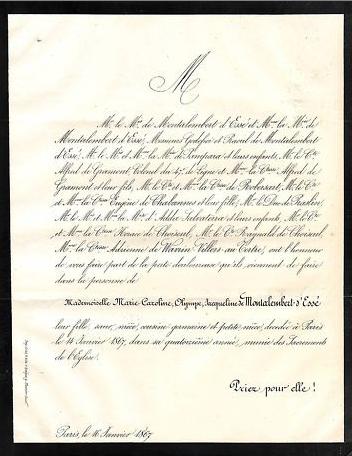 M
M. le Mis de Montalembert d'Essé et Mme la Mise de
Montalembert d'Essé, Messieurs Godefroi et Raoul de Montalembert
d'Essé, M. le Mis et Mme la Mise de et leurs enfants, M. le Cte
Alfred de Gramont Colonel du 47e de Ligne et Mme la Ctesse Alfred de
Gramont et leur fils, M. le Cte et Mme la Ctesse de Robersart, M. le Cte
et Mme la Ctesse Eugène de Chabannes et leur fils, M. le Duc de Praslin,
M. le Mis et Mme la Mise d'Adda Salvaterra et leurs enfants, M. le Cte
et Mme la Ctesse Horace de Choiseul, M. le Cte Raynald de Choiseul,
Mme la Ctesse Adrienne de Wavrin Villers au Tertre, ont l'honneur
de vous faire part de la perte douloureuse qu'ils viennent de faire
dans la personne de
Mademoiselle Marie-Caroline, Olympe, Jacqueline de Montalembert-d'Essé
leur fille, sœur, nièce, cousine germaine et petite nièce, décédée à Paris
le 14 Janvier 1867, dans sa quatorzième année, munie des Sacrements
de l'Eglise.
Priez pour elle !
Paris, le 16 Janvier 1867